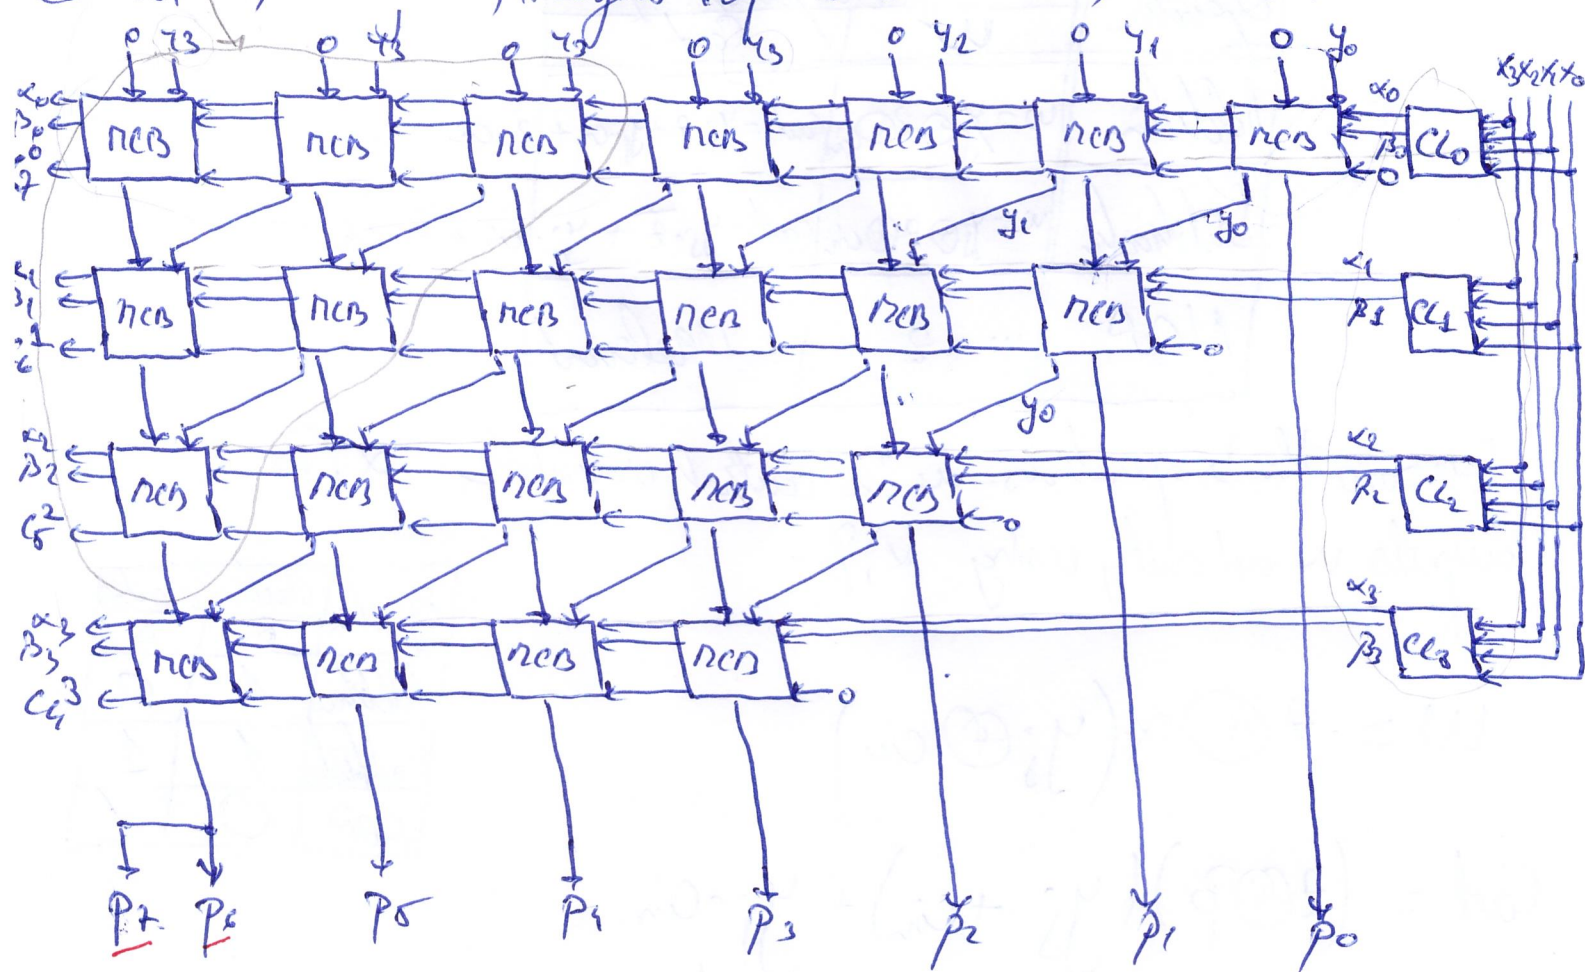 0 y3 0 y3 0 y3 0 y3 0 y2 0 y1 0 y0
x3 x2 x1 x0
α0
β0
ПСВ ПСВ ПСВ ПСВ ПСВ ПСВ ПСВ α0 β0 CL0
0
y1 y0
α1
β1
ПСВ ПСВ ПСВ ПСВ ПСВ ПСВ β1 CL1
0
y0
α2
β2
ПСВ ПСВ ПСВ ПСВ ПСВ β2 CL2
C5^2 0
α3
β3
ПСВ ПСВ ПСВ ПСВ β3 CL3
C4^3 0
P7 P6 P5 P4 P3 P2 P1 P0